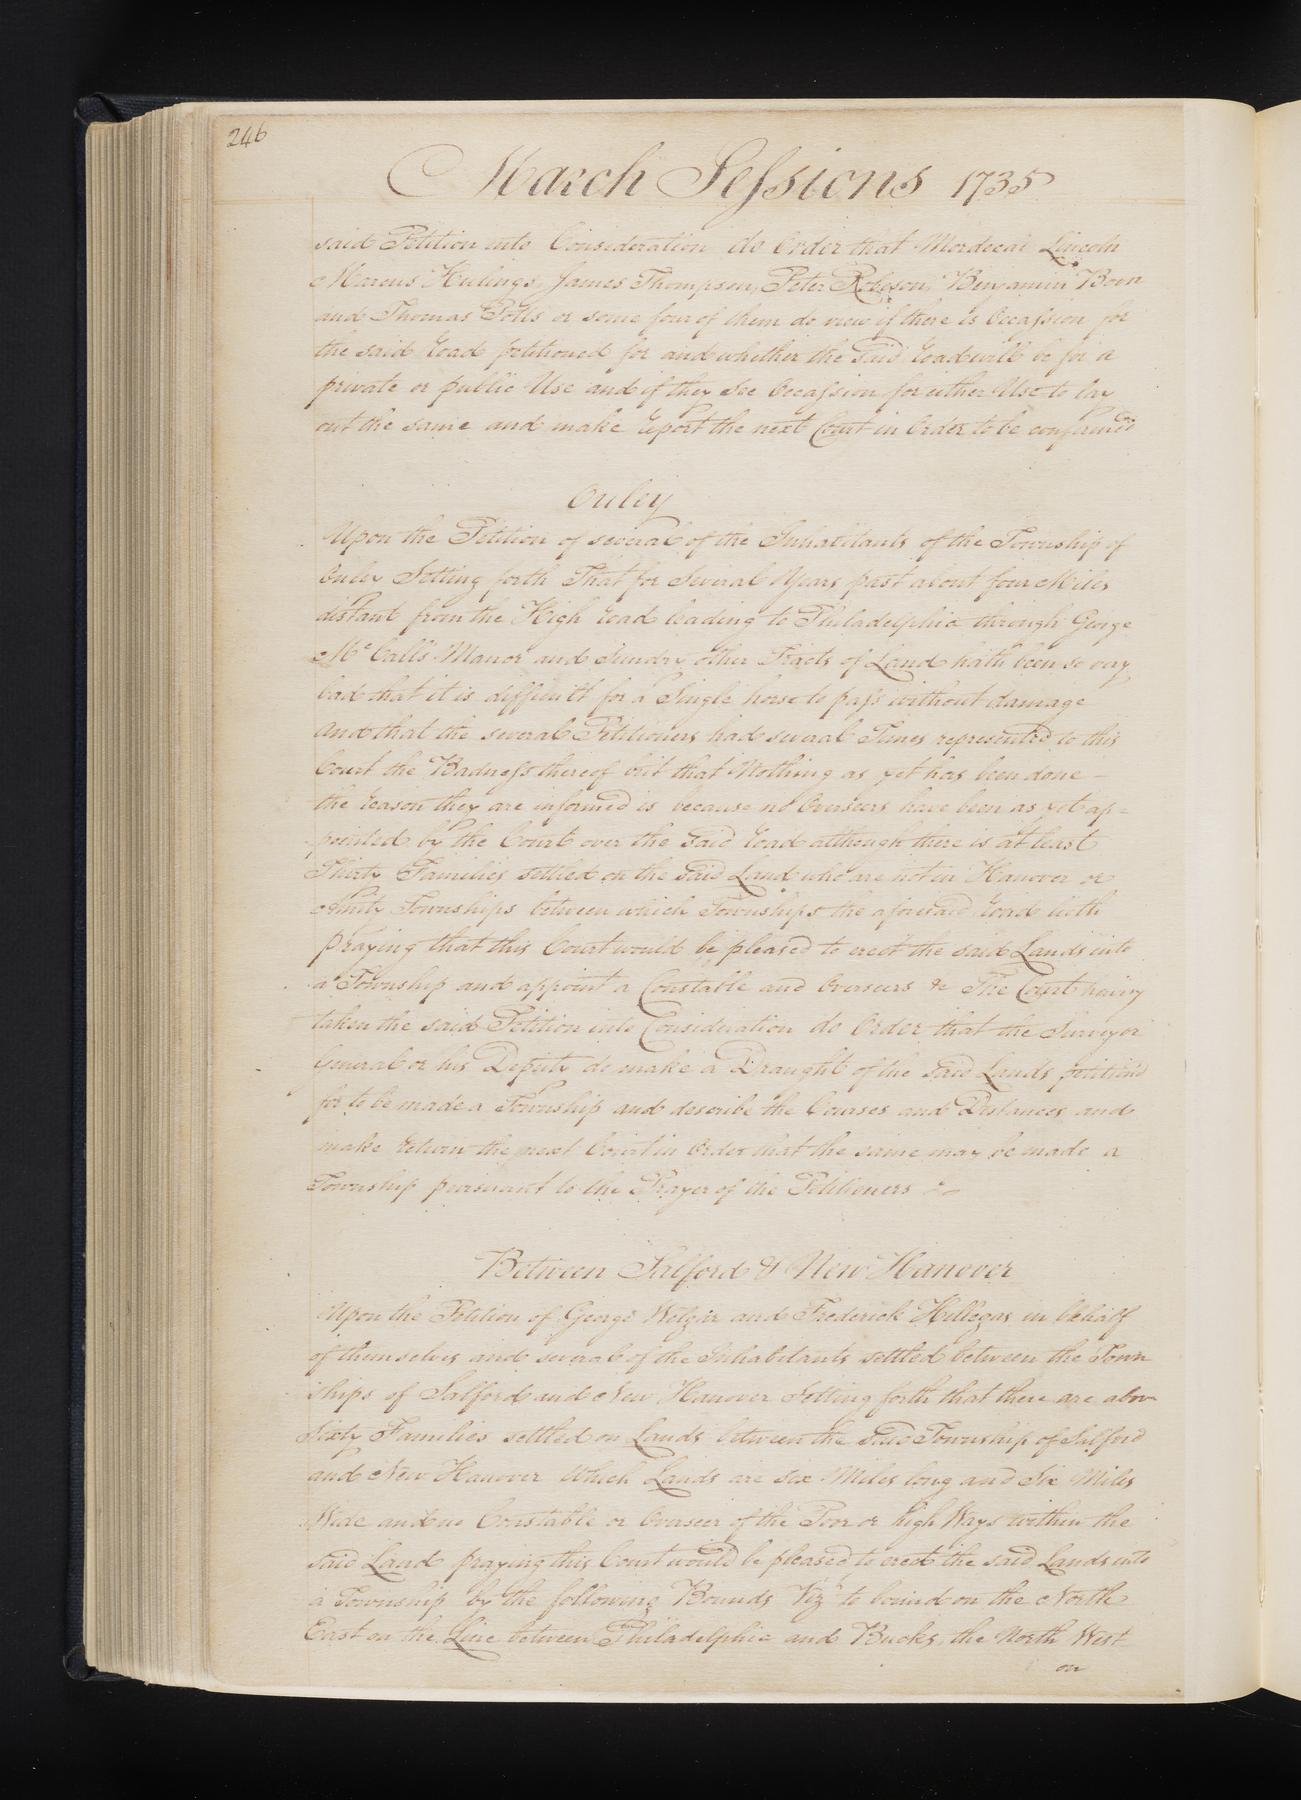 246
March Sessions 1735
said Petition into Consideration do Order that Mordecai Lincoln
Marcus Hulings, James Thompson, Peter Robeson, Benjamin Boon
and Thomas Potts or some four of them do view if there is Occassion for
the said Road petitioned for and whether the said Road will be for a
private or public Use and if they See Occassion for either Use to lay
out the same and make Report the next Court in Order to be confirmed
Ouley
Upon the Petition of several of the Inhabitants of the Township of
Ouley Setting forth That for Several Years past about four Miles
distant from the High Road leading to Philadelphia through George
McCall's Manor and Sundry other Tracts of Land hath been so very
bad that it is difficult for a Single horse to pass without damage
And that the several Petitioners had several Times represented to this
Court the Badness thereof but that Nothing as yet has been done -
the Reason they are informed is because no Overseers have been as yet ap=
pointed by the Court over the said Road although there is at least
Thirty Families settled on the said Land who are not in Hanover or
Amity Townships between which Townships the aforesaid Road lieth
Praying that this Court would be pleased to erect the said Lands into
a Township and appoint a Constable and Overseers &c The Court having
taken the said Petition into Consideration do Order that the Surveyor
General or his Deputy do make a Draught of the said Lands petition'd
for to be made a Township and describe the Courses and Distances and
make Return the next Court in Order that the same may be made a
Township pursuant to the Prayer of the Petitioners
Between Salford & New Hanover
Upon the Petition of George Welger and Frederick Hillegas in behalf
of themselves and several of the Inhabitants settled between the Town
ships of Salford and New Hanover Setting forth that there are above
Sixty Families settled on Lands between the said Township of Salford
and New Hanover Which Lands are six Miles long and Six Miles
Wide and no Constable or Overseer of the Poor or high Ways within the
said Land praying this Court would be pleased to erect the said Lands into
a Township by the following Bounds Vizt to bound on the North
East on the Line between Philadelphia and Bucks, the North West
on